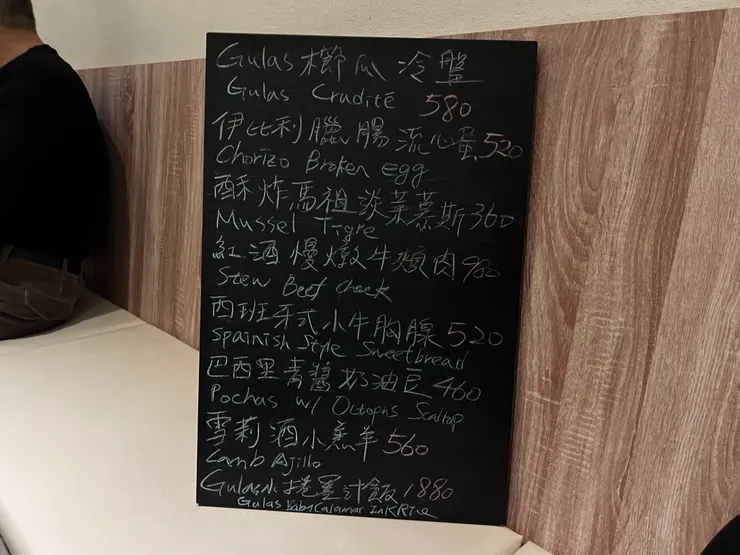 Gulas櫛瓜冷盤
Gulas Crudité 580
伊比利臘腸流心蛋520
Chorizo Broken egg
酥炸馬祖淡菜慕斯360
Mussel Tigre
紅酒慢燉牛頰肉980
Stew Beef Cheek
西班牙式小牛胸腺520
Spainish Style Sweetbread
巴西里青醬奶油豆460
Pochas w/ Octopus Scallop
雪莉酒小羔羊560
Lamb Ajillo
Gulas小捲墨汁飯1880
Gulas Baby Calamar Ink Rice